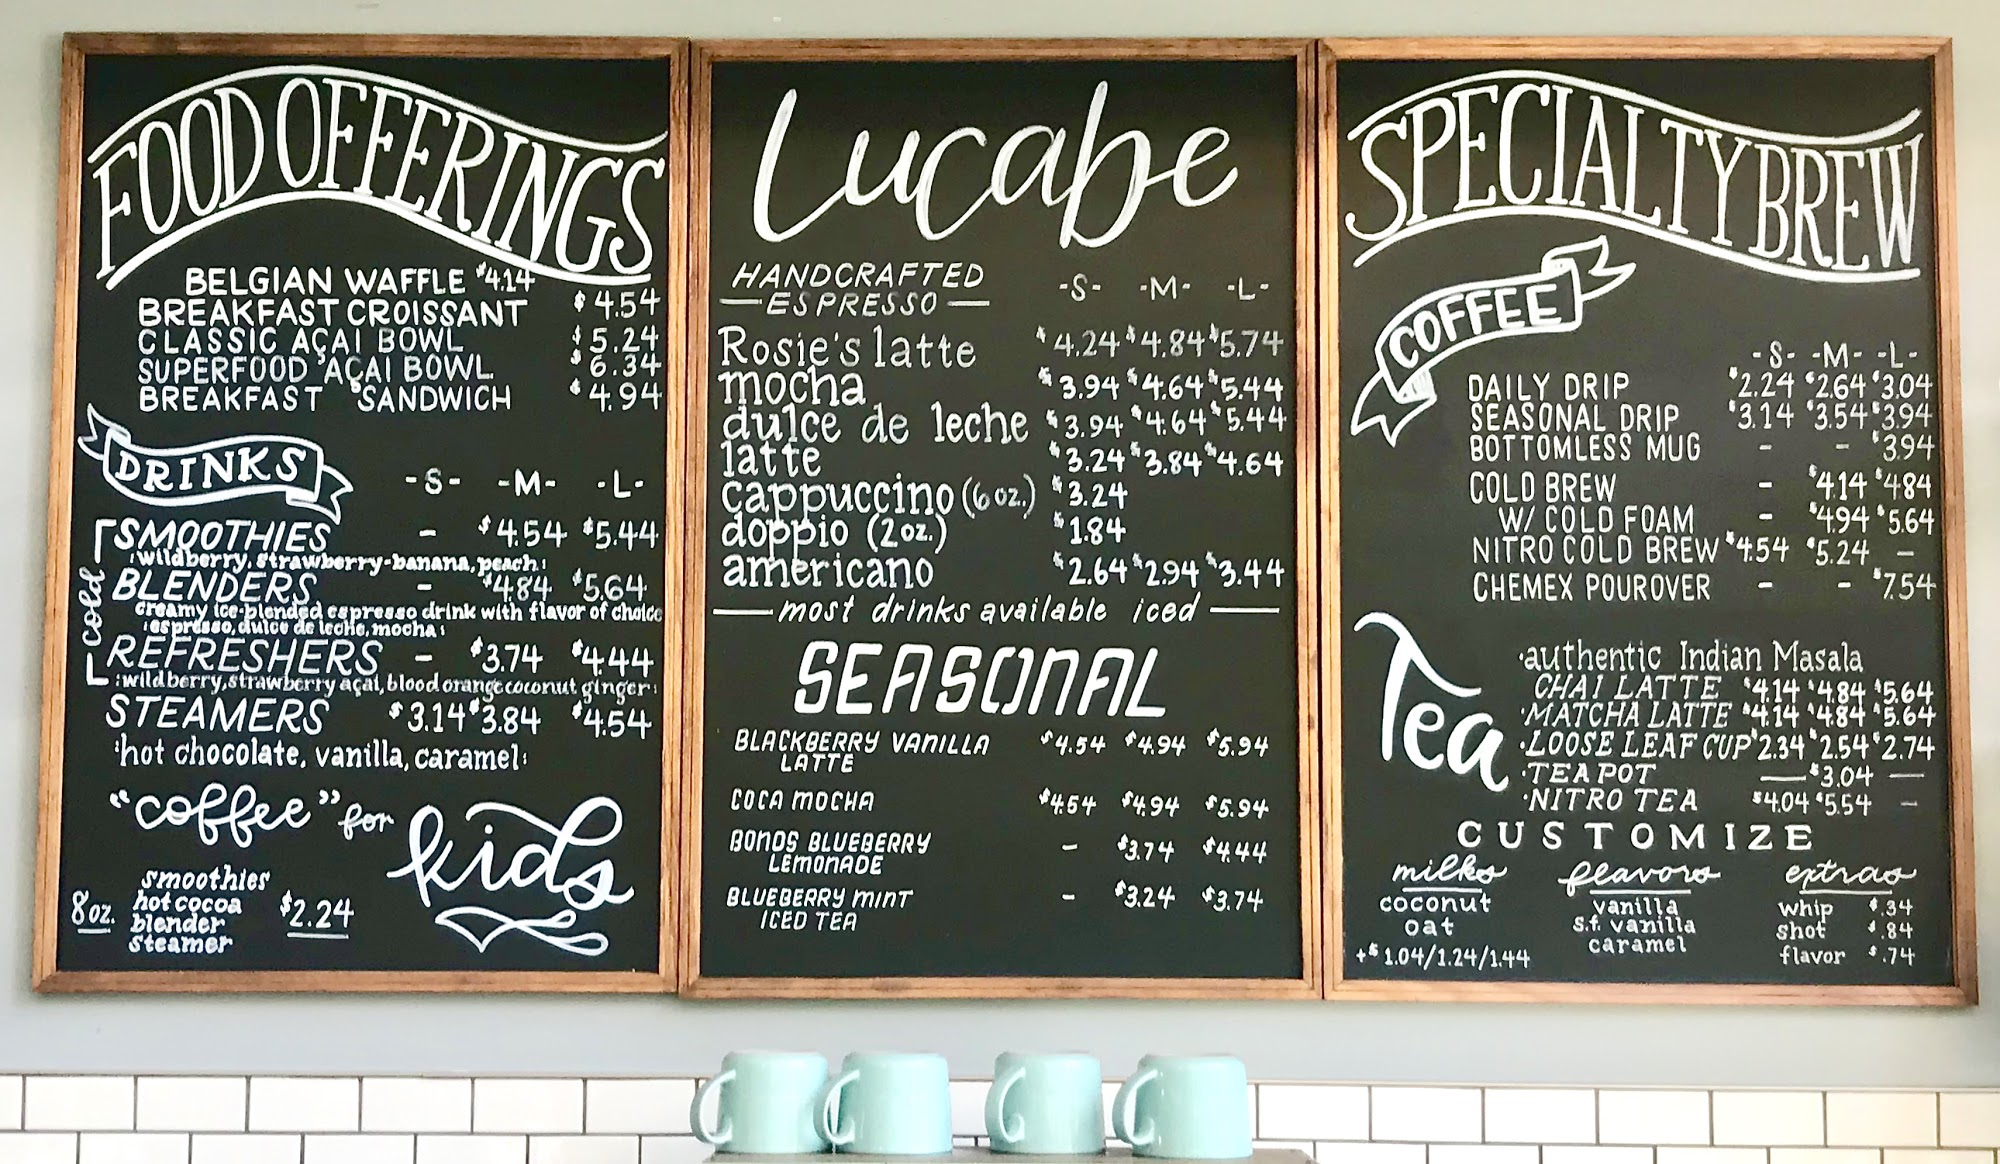 FOOD OFFERINGS
BELGIAN WAFFLE $4.14
BREAKFAST CROISSANT $4.54
CLASSIC AÇAI BOWL $5.24
SUPERFOOD AÇAI BOWL $6.34
BREAKFAST SANDWICH $4.94
DRINKS -S- -M- -L-
cold
SMOOTHIES - $4.54 $5.44
:wildberry, strawberry-banana, peach:
BLENDERS - $4.84 $5.64
creamy ice-blended espresso drink with flavor of choice
:espresso, dulce de leche, mocha:
REFRESHERS - $3.74 $4.44
:wildberry, strawberry açai, blood orange coconut ginger:
STEAMERS $3.14 $3.84 $4.54
:hot chocolate, vanilla, caramel:
"coffee" for kids
smoothies
hot cocoa
8oz. blender $2.24
steamer
Lucabe
HANDCRAFTED
ESPRESSO -S- -M- -L-
Rosie's latte $4.24 $4.84 $5.74
mocha $3.94 $4.64 $5.44
dulce de leche $3.94 $4.64 $5.44
latte $3.24 $3.84 $4.64
cappuccino (6oz.) $3.24
doppio (2oz.) $1.84
americano $2.64 $2.94 $3.44
most drinks available iced
SEASONAL
BLACKBERRY VANILLA $4.54 $4.94 $5.94
LATTE
COCA MOCHA $4.54 $4.94 $5.94
BONDS BLUEBERRY - $3.74 $4.44
LEMONADE
BLUEBERRY MINT - $3.24 $3.74
ICED TEA
SPECIALTY BREW
COFFEE
-S- -M- -L-
DAILY DRIP $2.24 $2.64 $3.04
SEASONAL DRIP $3.14 $3.54 $3.94
BOTTOMLESS MUG - - $3.94
COLD BREW - $4.14 $4.84
W/ COLD FOAM - $4.94 $5.64
NITRO COLD BREW $4.54 $5.24 -
CHEMEX POUROVER - - $7.54
Tea
·authentic Indian Masala
CHAI LATTE $4.14 $4.84 $5.64
·MATCHA LATTE $4.14 $4.84 $5.64
·LOOSE LEAF CUP $2.34 $2.54 $2.74
·TEA POT — $3.04 —
·NITRO TEA $4.04 $5.54 -
CUSTOMIZE
milks flavors extras
coconut vanilla whip $.34
oat s.f. vanilla shot $.84
+$1.04/1.24/1.44 caramel flavor $.74